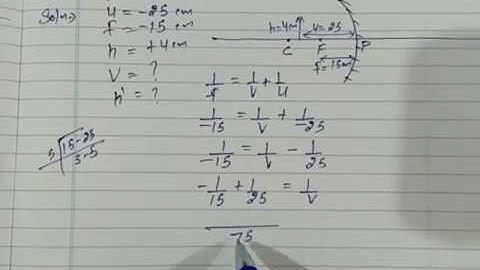 Soln:→
u = -25 cm
f = -15 cm
h = +4cm
v = ?
h' = ?
h=4cm
u=25
C F P
f=15cm
1/f = 1/v + 1/u
1/-15 = 1/v + 1/-25
1/-15 = 1/v - 1/25
-1/15 + 1/25 = 1/v
75
5 15-25
3-5